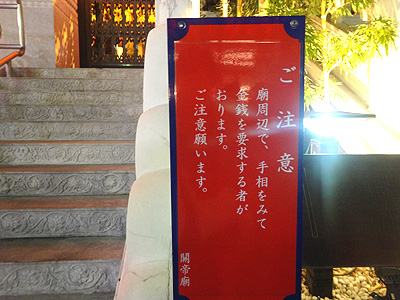 ご注意
廟周辺で、手相をみて
金銭を要求する者が
おります。
ご注意願います。
関帝廟